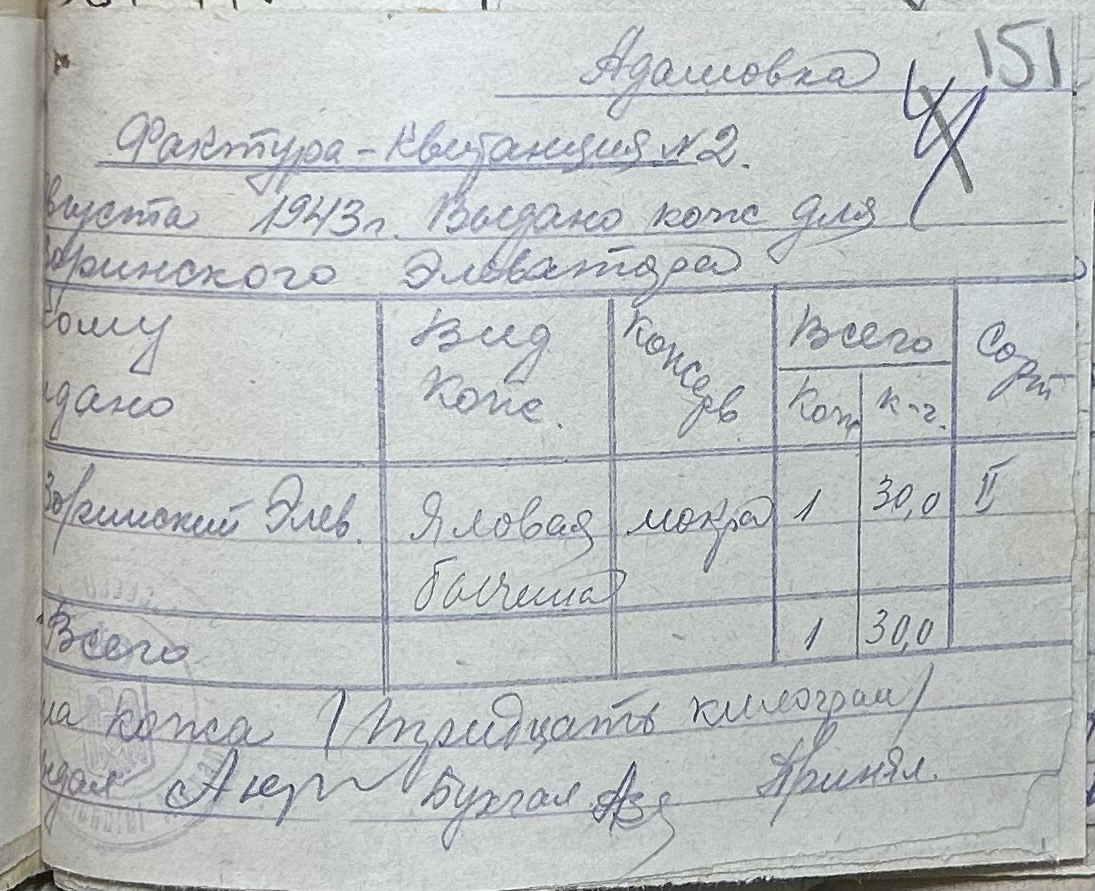 151
Адамовка
Фактура-Квитанция №2.
вгуста 1943г. Выдано кож для
Зоринского Элеватора
ому дано
Вид Кож.
Консерв.
Всего
Кож к-г.
Сорт
Зоринский Элев. Яловая мокра 1 30,0 II
большая
Всего 1 30,0
на кожа (тридцать килограм)
ыдал Бухгал. Принял.